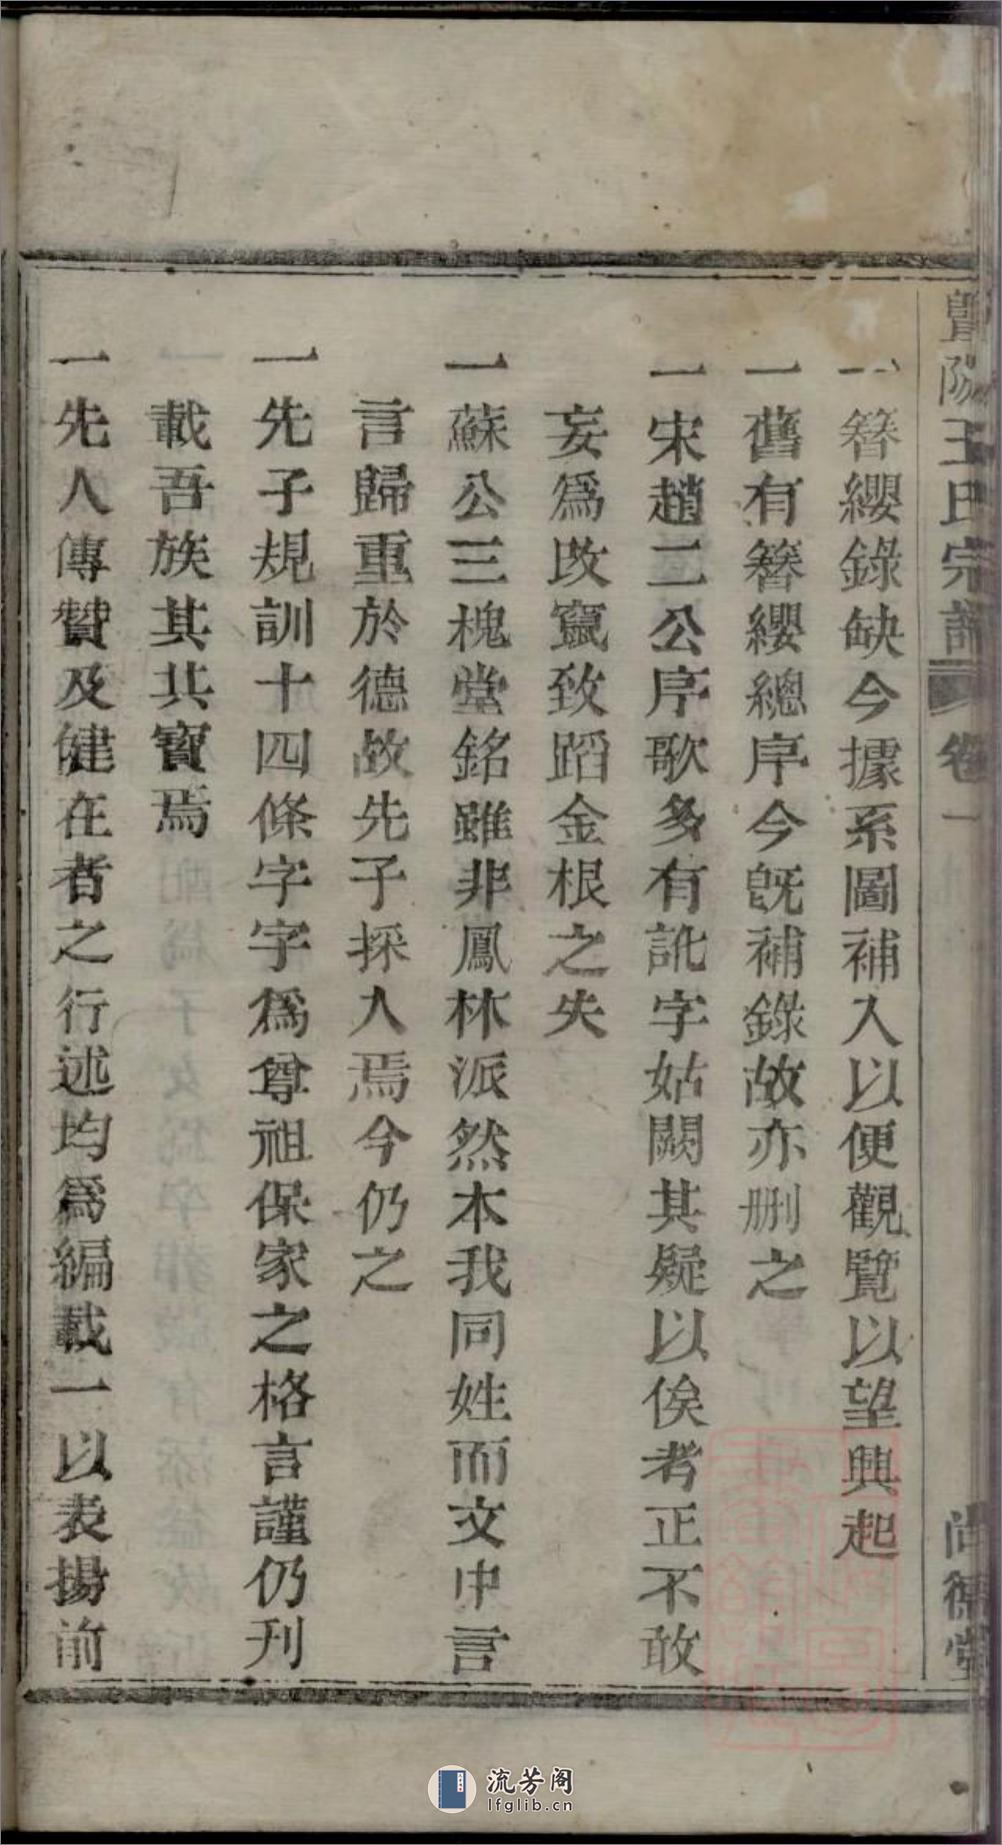 暨陽王氏宗譜 卷一 尚德堂
一簪纓錄缺今據系圖補入以便觀覽以望興起
一舊有簪纓總序今旣補錄故亦删之
一宋趙二公序歌多有訛字姑闕其疑以俟考正不敢
妄爲改竄致蹈金根之失
一蘇公三槐堂銘雖非鳳林派然本我同姓而文中言
言歸重於德故先子採入焉今仍之
一先子規訓十四條字字爲尊祖保家之格言謹仍刊
載吾族其共寶焉
一先人傳贊及健在者之行述均爲編載一以表揚前
流芳阁
lfglib.cn